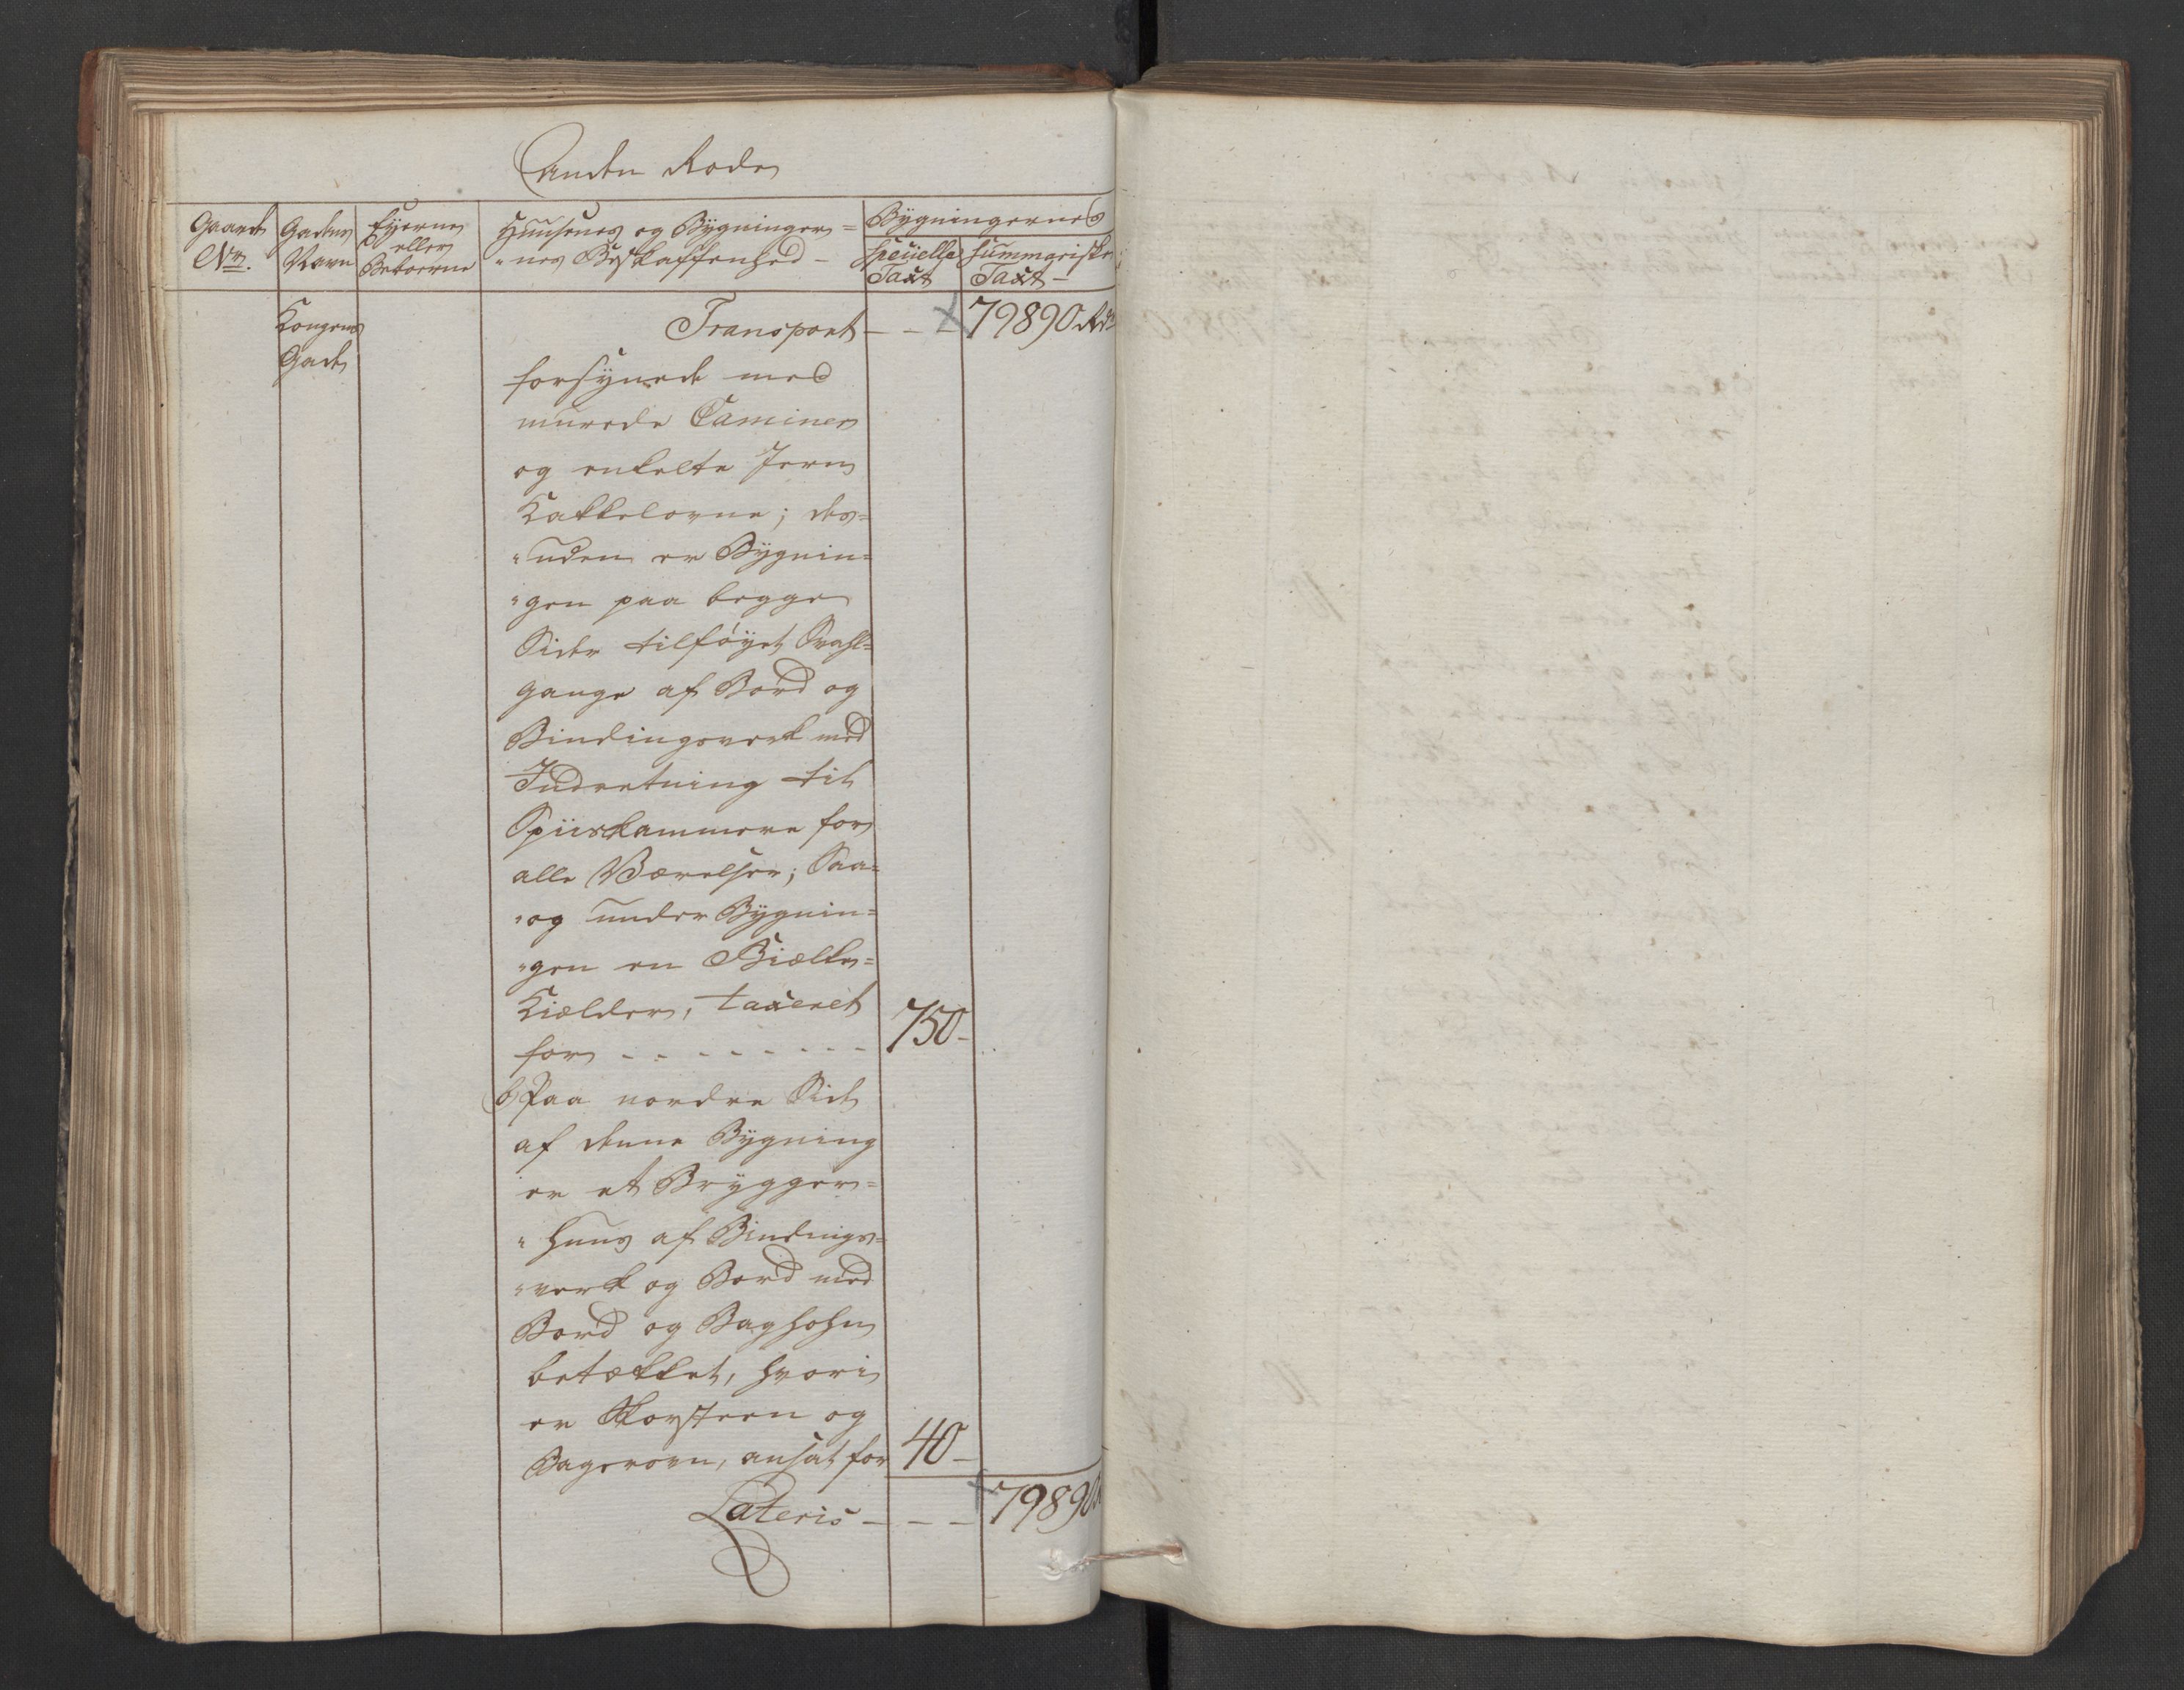 Anden Rode
Gaards No.
Gadens Navn
Eyerne eller Beboerne
Huusenes og Bygninger=
"nes Beskaffenhed -
Bygningernes
specielle Taxt
summariske Taxt -
Kongens
Gade
Transport - - - 79890 Rdr
forsynede med
murede Caminer
og enkelte Jern
Kakkelovne; des=
"uden er Bygnin=
"gen paa begge
Sider tilføyet Svahl=
gange af Bord og
Bindingsverk med
Indretning til
Spiiskammere for
alle Værelser; Saa=
"og under Bygnin=
"gen en Biælke=
Kielder, taxeret
for - - - - - - - - 750 -
b, Paa nordre Side
af denne Bygning
er et Brygger=
"huus af Bindings=
"verk og Bord med
Bord og Baghohn
betækket, hvori
er Skorsteen og
Bagerovn, ansat for 40 -
Lateris - - - 79890